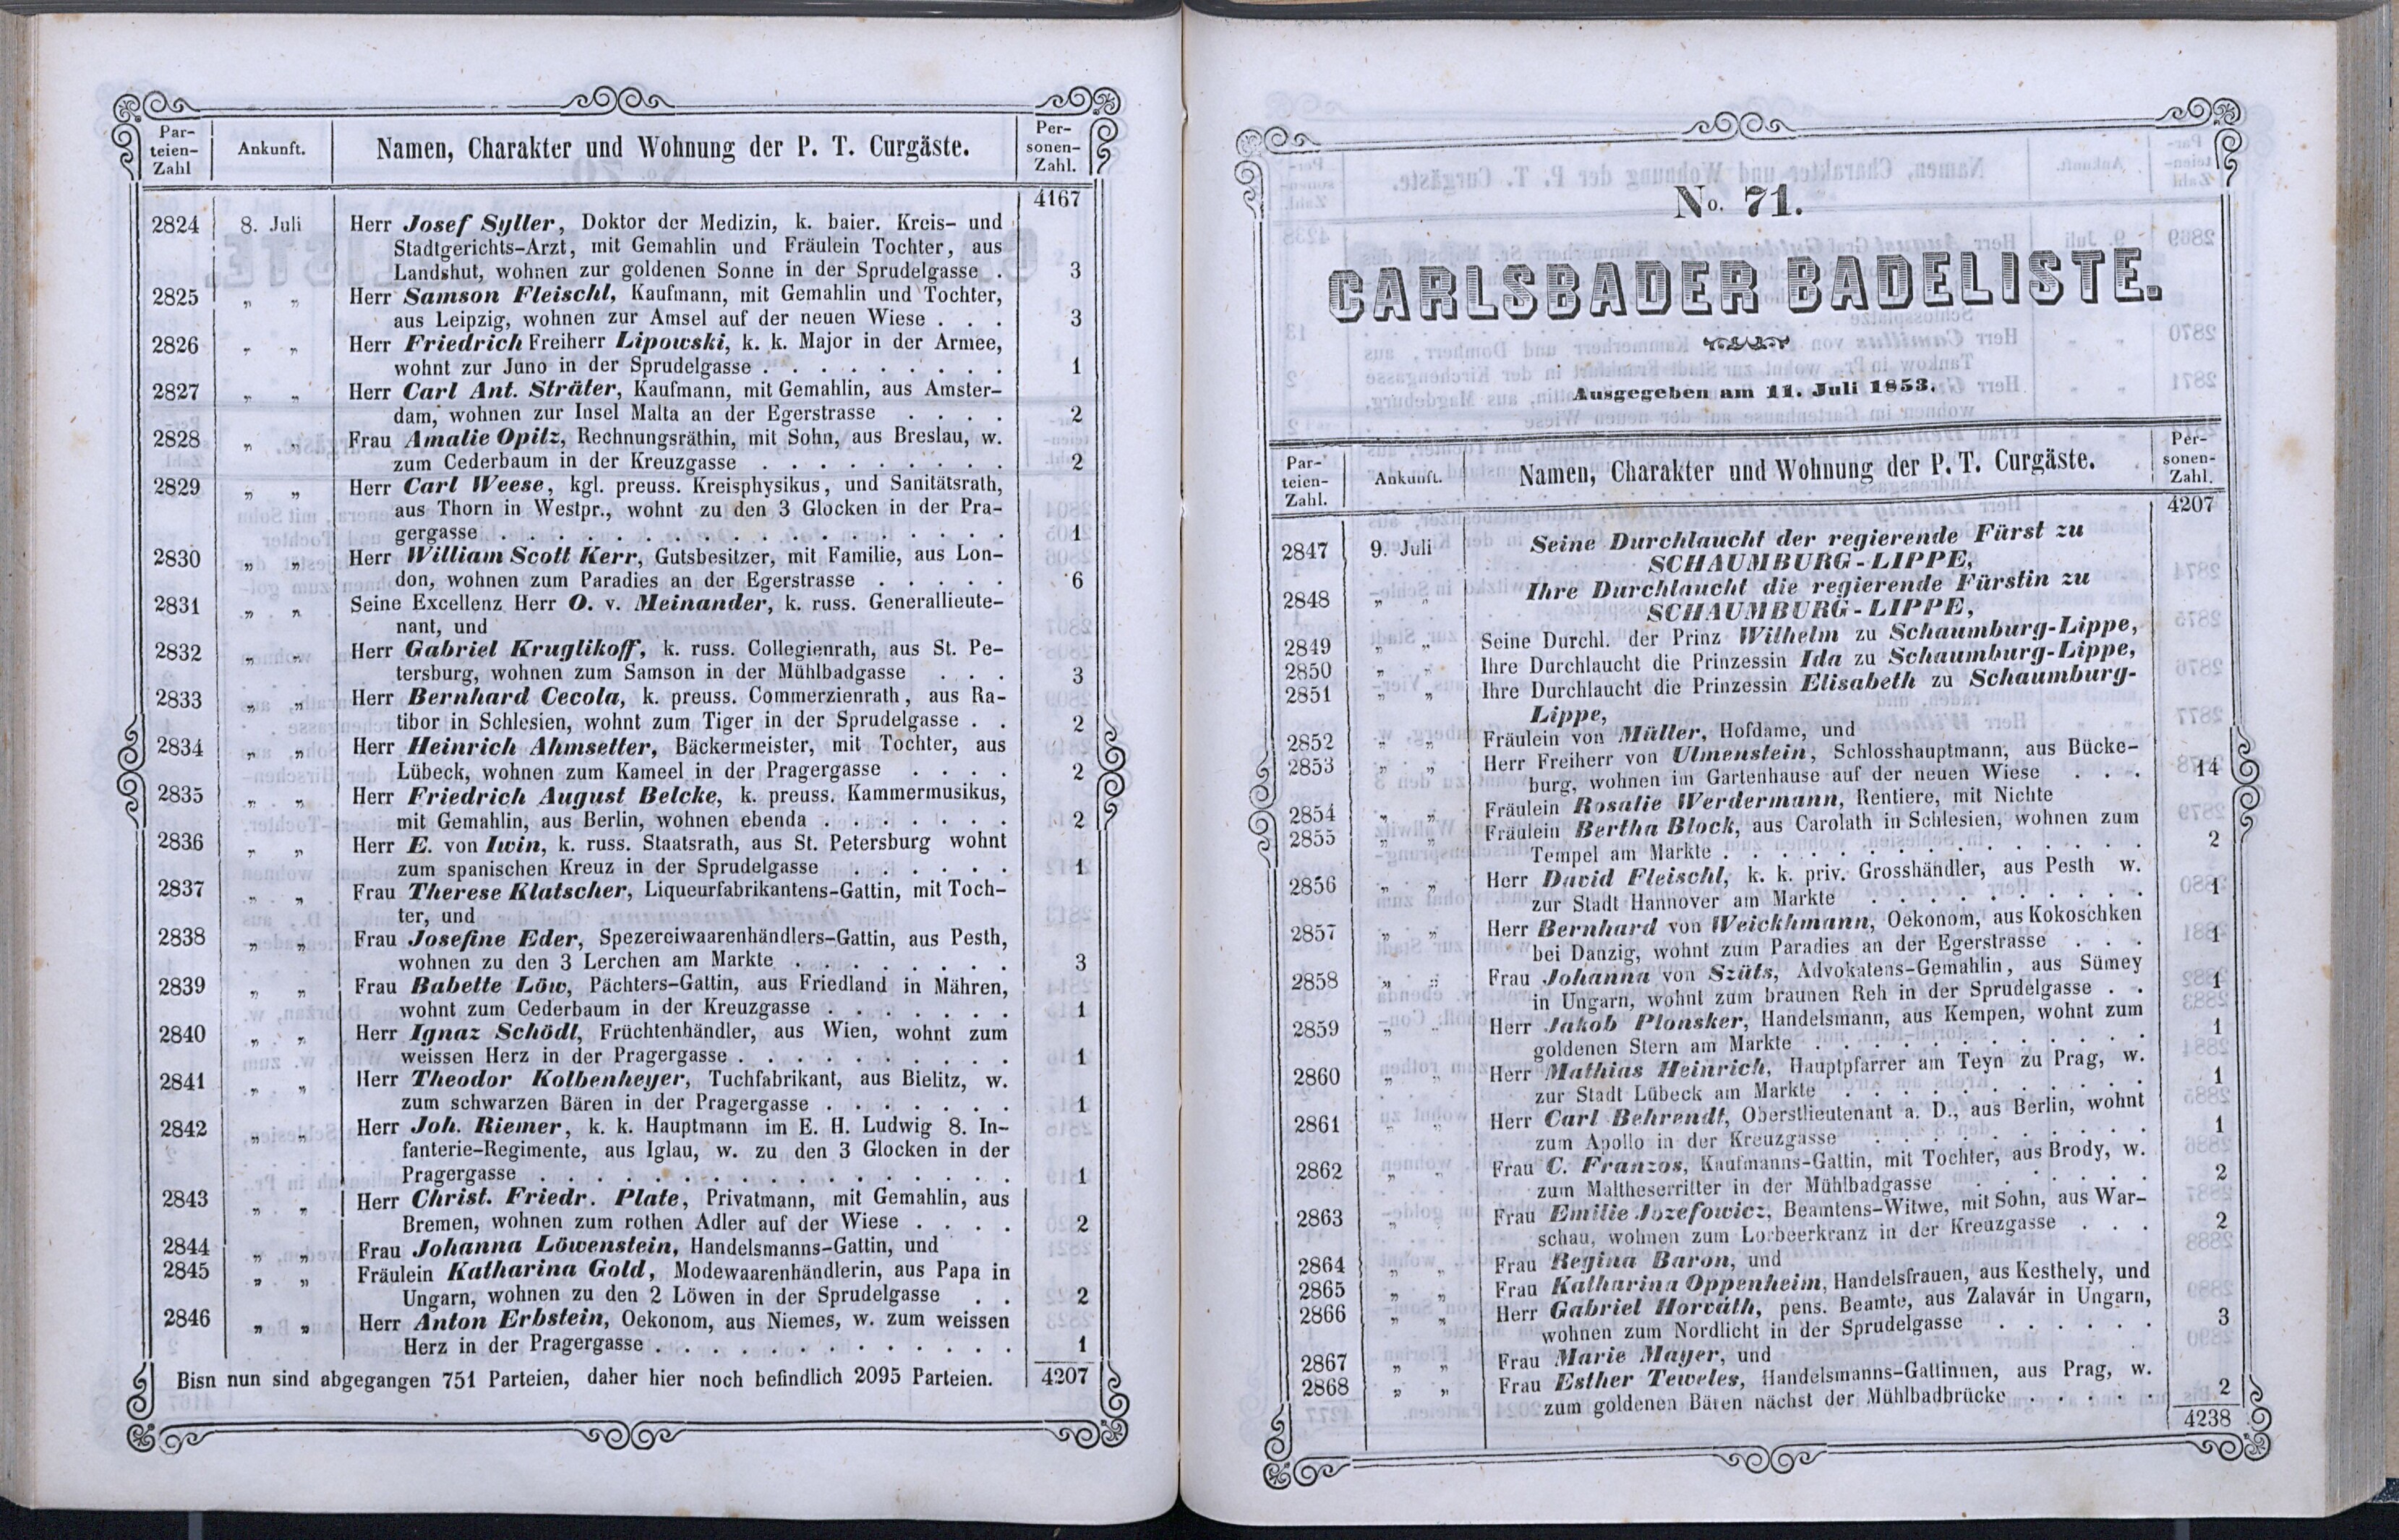 Par-
teien-
Zahl
Ankunft.
Namen, Charakter und Wohnung der P. T. Curgäste.
Per-
sonen-
Zahl.
4167
2824 8. Juli Herr Josef Syller, Doktor der Medizin, k. baier. Kreis- und
Stadtgerichts-Arzt, mit Gemahlin und Fräulein Tochter, aus
Landshut, wohnen zur goldenen Sonne in der Sprudelgasse . 3
2825 „ „ Herr Samson Fleischl, Kaufmann, mit Gemahlin und Tochter,
aus Leipzig, wohnen zur Amsel auf der neuen Wiese . . . 3
2826 „ „ Herr Friedrich Freiherr Lipowski, k. k. Major in der Armee,
wohnt zur Juno in der Sprudelgasse . . . . . . . . . 1
2827 „ „ Herr Carl Ant. Sträter, Kaufmann, mit Gemahlin, aus Amster-
dam, wohnen zur Insel Malta an der Egerstrasse . . . . 2
2828 „ „ Frau Amalie Opitz, Rechnungsräthin, mit Sohn, aus Breslau, w.
zum Cederbaum in der Kreuzgasse . . . . . . . . . 2
2829 „ „ Herr Carl Weese, kgl. preuss. Kreisphysikus, und Sanitätsrath,
aus Thorn in Westpr., wohnt zu den 3 Glocken in der Pra-
gergasse . . . . . . . . . . . . . . . . . . 1
2830 „ „ Herr William Scott Kerr, Gutsbesitzer, mit Familie, aus Lon-
don, wohnen zum Paradies an der Egerstrasse . . . . . 6
2831 „ „ Seine Excellenz Herr O. v. Meinander, k. russ. Generallieute-
nant, und
2832 „ „ Herr Gabriel Kruglikoff, k. russ. Collegienrath, aus St. Pe-
tersburg, wohnen zum Samson in der Mühlbadgasse . . . 3
2833 „ „ Herr Bernhard Cecola, k. preuss. Commerzienrath, aus Ra-
tibor in Schlesien, wohnt zum Tiger in der Sprudelgasse . . 2
2834 „ „ Herr Heinrich Ahmsetter, Bäckermeister, mit Tochter, aus
Lübeck, wohnen zum Kameel in der Pragergasse . . . . 2
2835 „ „ Herr Friedrich August Belcke, k. preuss. Kammermusikus,
mit Gemahlin, aus Berlin, wohnen ebenda . . . . . . . 2
2836 „ „ Herr E. von Iwin, k. russ. Staatsrath, aus St. Petersburg wohnt
zum spanischen Kreuz in der Sprudelgasse . . . . . . 1
2837 „ „ Frau Therese Klatscher, Liqueurfabrikantens-Gattin, mit Toch-
ter, und
2838 „ „ Frau Josefine Eder, Spezereiwaarenhändlers-Gattin, aus Pesth,
wohnen zu den 3 Lerchen am Markte . . . . . . . . 3
2839 „ „ Frau Babette Löw, Pächters-Gattin, aus Friedland in Mähren,
wohnt zum Cederbaum in der Kreuzgasse . . . . . . . 1
2840 „ „ Herr Ignaz Schödl, Früchtenhändler, aus Wien, wohnt zum
weissen Herz in der Pragergasse . . . . . . . . . . 1
2841 „ „ Herr Theodor Kolbenheyer, Tuchfabrikant, aus Bielitz, w.
zum schwarzen Bären in der Pragergasse . . . . . . . 1
2842 „ „ Herr Joh. Riemer, k. k. Hauptmann im E. H. Ludwig 8. In-
fanterie-Regimente, aus Iglau, w. zu den 3 Glocken in der
Pragergasse . . . . . . . . . . . . . . . . . 1
2843 „ „ Herr Christ. Friedr. Plate, Privatmann, mit Gemahlin, aus
Bremen, wohnen zum rothen Adler auf der Wiese . . . . 2
2844 „ „ Frau Johanna Löwenstein, Handelsmanns-Gattin, und
2845 „ „ Fräulein Katharina Gold, Modewaarenhändlerin, aus Papa in
Ungarn, wohnen zu den 2 Löwen in der Sprudelgasse . . 2
2846 „ „ Herr Anton Erbstein, Oekonom, aus Niemes, w. zum weissen
Herz in der Pragergasse . . . . . . . . . . . . . 1
Bisn nun sind abgegangen 751 Parteien, daher hier noch befindlich 2095 Parteien. 4207
No. 71.
CARLSBADER BADELISTE.
Ausgegeben am 11. Juli 1853.
Par-
teien-
Zahl.
Ankunft.
Namen, Charakter und Wohnung der P. T. Curgäste.
Per-
sonen-
Zahl.
4207
2847 9. Juli Seine Durchlaucht der regierende Fürst zu
SCHAUMBURG-LIPPE,
2848 „ „ Ihre Durchlaucht die regierende Fürstin zu
SCHAUMBURG-LIPPE,
2849 „ „ Seine Durchl. der Prinz Wilhelm zu Schaumburg-Lippe,
2850 „ „ Ihre Durchlaucht die Prinzessin Ida zu Schaumburg-Lippe,
2851 „ „ Ihre Durchlaucht die Prinzessin Elisabeth zu Schaumburg-
Lippe,
2852 „ „ Fräulein von Müller, Hofdame, und
2853 „ „ Herr Freiherr von Ulmenstein, Schlosshauptmann, aus Bücke-
burg, wohnen im Gartenhause auf der neuen Wiese . . . 14
2854 „ „ Fräulein Rosalie Werdermann, Rentiere, mit Nichte
2855 „ „ Fräulein Bertha Block, aus Carolath in Schlesien, wohnen zum
Tempel am Markte . . . . . . . . . . . . . . . 2
2856 „ „ Herr David Fleischl, k. k. priv. Grosshändler, aus Pesth w.
zur Stadt Hannover am Markte . . . . . . . . . . 1
2857 „ „ Herr Bernhard von Weickhmann, Oekonom, aus Kokoschken
bei Danzig, wohnt zum Paradies an der Egerstrasse . . . 1
2858 „ „ Frau Johanna von Szüts, Advokatens-Gemahlin, aus Sümey
in Ungarn, wohnt zum braunen Reh in der Sprudelgasse . . 1
2859 „ „ Herr Jakob Plonsker, Handelsmann, aus Kempen, wohnt zum
goldenen Stern am Markte . . . . . . . . . . . . 1
2860 „ „ Herr Mathias Heinrich, Hauptpfarrer am Teyn zu Prag, w.
zur Stadt Lübeck am Markte . . . . . . . . . . . 1
2861 „ „ Herr Carl Behrendt, Oberstlieutenant a. D., aus Berlin, wohnt
zum Apollo in der Kreuzgasse . . . . . . . . . . 1
2862 „ „ Frau C. Franzos, Kaufmanns-Gattin, mit Tochter, aus Brody, w.
zum Maltheserritter in der Mühlbadgasse . . . . . . 2
2863 „ „ Frau Emilie Jozefowicz, Beamtens-Witwe, mit Sohn, aus War-
schau, wohnen zum Lorbeerkranz in der Kreuzgasse . . . 2
2864 „ „ Frau Regina Baron, und
2865 „ „ Frau Katharina Oppenheim, Handelsfrauen, aus Kesthely, und
2866 „ „ Herr Gabriel Horváth, pens. Beamte, aus Zalavár in Ungarn,
wohnen zum Nordlicht in der Sprudelgasse . . . . . . 3
2867 „ „ Frau Marie Mayer, und
2868 „ „ Frau Esther Teweles, Handelsmanns-Gattinnen, aus Prag, w.
zum goldenen Bären nächst der Mühlbadbrücke . . . . . 2
4238